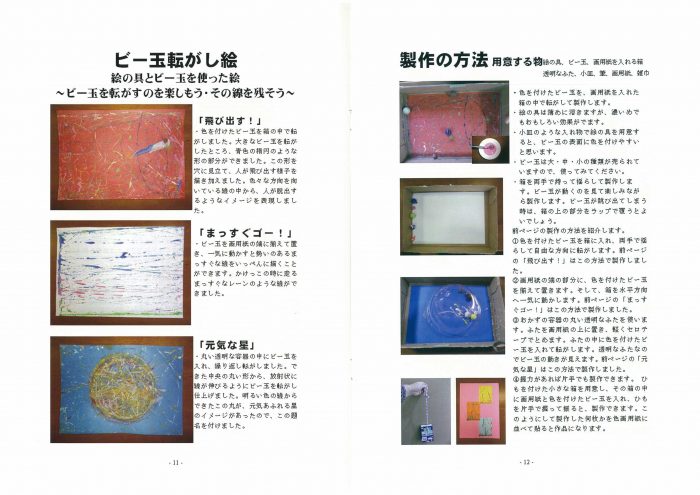 ビー玉転がし絵
絵の具とビー玉を使った絵
～ビー玉を転がすのを楽しもう・その線を残そう～
「飛び出す！」
・色を付けたビー玉を箱の中で転
がしました。大きなビー玉を転が
したところ、青色の楕円のような
形の部分ができました。この形を
穴に見立て、人が飛び出す様子を
描き加えました。色々な方向を向
いている線の中から、人が脱出す
るようなイメージを表現しまし
た。
「まっすぐゴー！」
・ビー玉を画用紙の端に揃えて置
き、一気に動かすと勢いのあるま
っすぐな線をいっぺんに描くこと
ができます。かけっこの時に走る
まっすぐなレーンのような線がで
きました。
「元気な星」
・丸い透明な容器の中にビー玉を
入れ、繰り返し転がしました。で
きた中央の丸い形から、放射状に
線が伸びるようにビー玉を転がし
仕上げました。明るい色の線から
できたこの丸が、元気あふれる星
のイメージがあったので、この題
名を付けました。
- 11 -
製作の方法 用意する物 絵の具、ビー玉、画用紙を入れる箱
透明なふた、小皿、筆、画用紙、雑巾
・色を付けたビー玉を、画用紙を入れた
箱の中で転がして製作します。
・絵の具は薄めに溶きますが、濃いめで
もおもしろい効果がでます。
・小皿のような入れ物で絵の具を用意す
ると、ビー玉の表面に色を付けやすい
と思います。
・ビー玉は大・中・小の種類が売られて
いますので、使ってみてください。
・箱を両手で持って揺らして製作しま
す。ビー玉が動くのを見て楽しみなが
ら製作します。ビー玉が跳び出てしまう
時は、箱の上の部分をラップで覆うとよ
いでしょう。
前ページの製作の方法を紹介します。
①色を付けたビー玉を箱に入れ、両手で揺
らして自由な方向に転がします。前ページ
の「飛び出す！」はこの方法で製作しまし
た。
②画用紙の端の部分に、色を付けたビー玉
を揃えて置きます。そして、箱を水平方向
へ一気に動かします。前ページの「まっす
ぐゴー！」はこの方法で製作しました。
③おかずの容器の丸い透明なふたを使いま
す。ふたを画用紙の上に置き、軽くセロテ
ープでとめます。ふたの中に色を付けたビ
ー玉を入れて転がします。透明なふたなの
でビー玉の動きが見えます。前ページの「元
気な星」はこの方法で製作しました。
④握力があれば片手でも製作できます。 ひ
もを付けた小さな箱を用意し、その箱の中
に画用紙と色を付けたビー玉を入れ、ひも
を片手で握って振ると、製作できます。こ
のようにして製作した何枚かを色画用紙に
並べて貼ると作品になります。
- 12 -